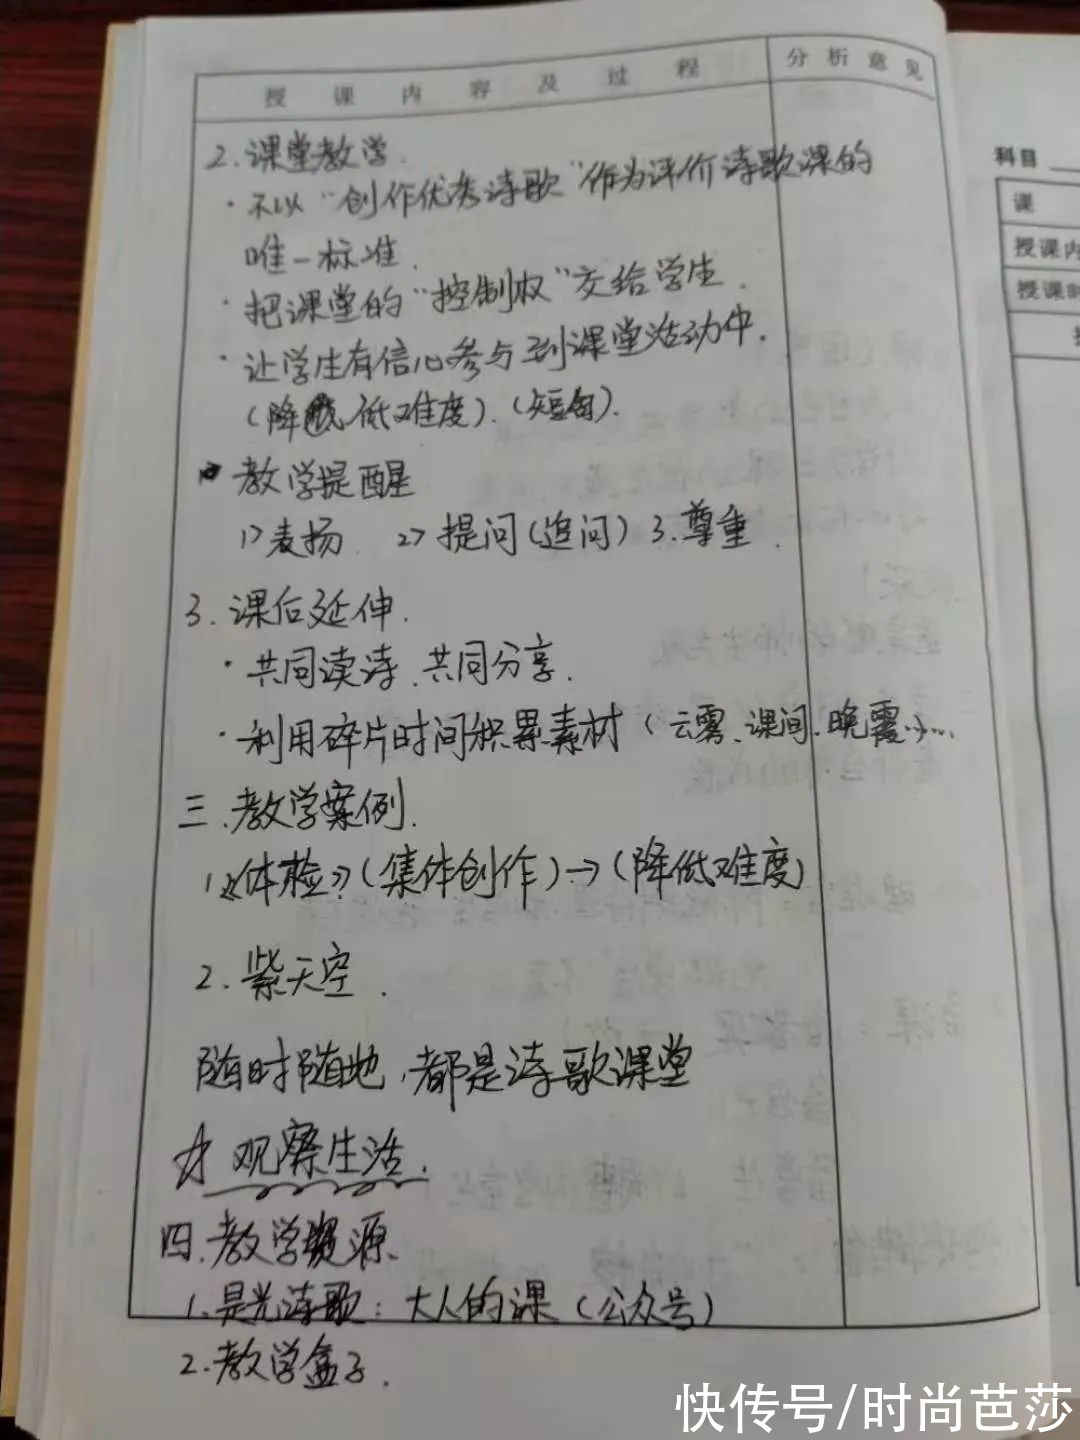 授课内容及过程 分析意见
2.课堂教学.
·不以“创作优秀诗歌”作为评价诗歌课的
唯一标准.
·把课堂的“控制权”交给学生.
·让学生有信心参与到课堂活动中.
(降低难度).(短句).
教学提醒
1>表扬 2>提问(追问) 3.尊重.
3.课后延伸.
·共同读诗、共同分享.
·利用碎片时间积累素材(云雾、课间、晚霞)....
三.教学案例.
1.《体检》(集体创作)→(降低难度)
2.紫天空.
随时随地,都是诗歌课堂
观察生活.
四.教学资源、
1.是光诗歌:大人的课(公众号)
2.教学盒子.
科目
课
授课内
授课时
快传号/时尚芭莎